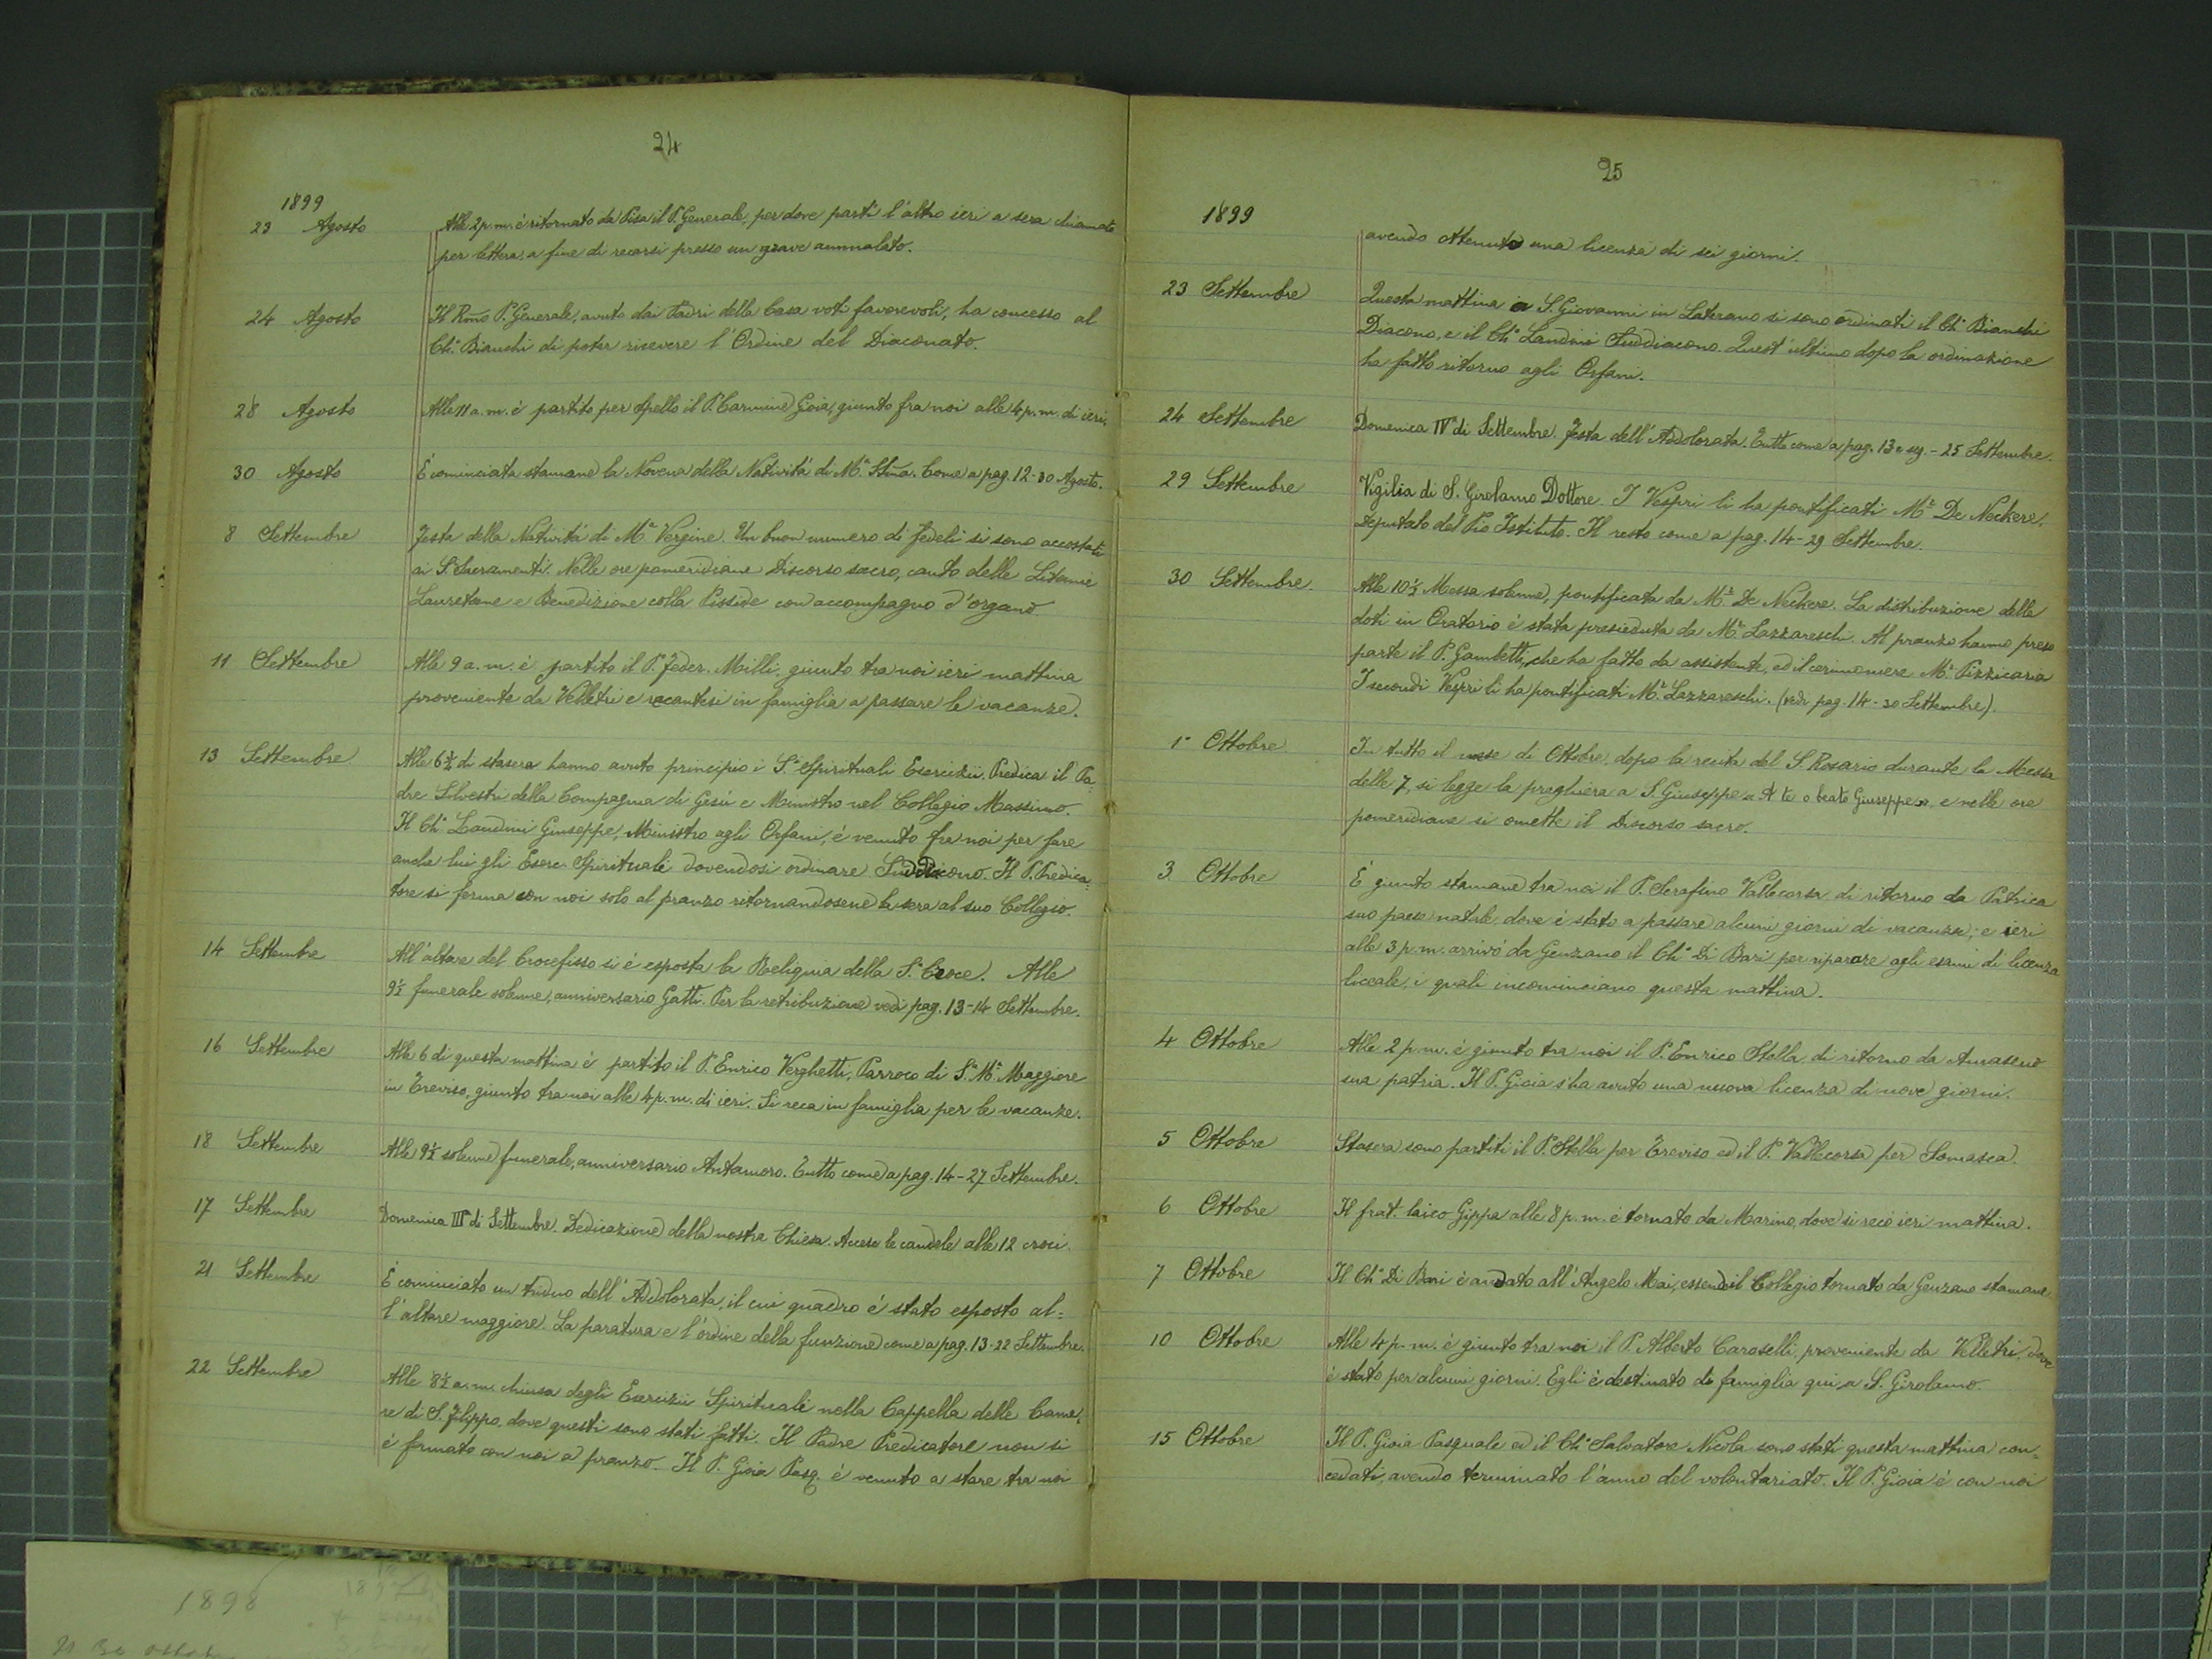 24
1899
23 Agosto Alle 2 p.m. è ritornato da Pisa il P. Generale, per dove partì l'altro ieri a sera chiamato
per lettera, a fine di recarsi presso un grave ammalato.
24 Agosto Il Rmo P. Generale, avuto dai Padri della Casa voti favorevoli, ha concesso al
Ch.º Bianchi di poter ricevere l'Ordine del Diaconato.
28 Agosto Alle 11 a.m. è partito per Spello il P. Carmine Gioia, giunto fra noi alle 4 p.m. di ieri.
30 Agosto È cominciata stamane la Novena della Natività di M.ª SSma. Come a pag. 12-30 Agosto.
8 Settembre Festa della Natività di M.ª Vergine. Un buon numero di fedeli si sono accostati
ai S. Sacramenti. Nelle ore pomeridiane Discorso sacro, canto delle Litanie
Lauretane e Benedizione colla Pisside con accompagno d'organo
11 Settembre Alle 9 a.m. è partito il P. Feder. Milli, giunto tra noi ieri mattina
proveniente da Velletri e recantesi in famiglia a passare le vacanze.
13 Settembre Alle 6½ di stasera hanno avuto principio i S.ti Spirituali Esercizii, Predica il Pa-
dre Silvestri della Compagnia di Gesù e Ministro nel Collegio Massimo.
Il Ch.º Landini Giuseppe, Ministro agli Orfani, è venuto fra noi per fare
anche lui gli Eserc. Spirituali dovendosi ordinare Suddiacono. Il P. Predica-
tore si ferma con noi solo al pranzo ritornandosene la sera al suo Collegio.
14 Settembre All'altare del Crocefisso si è esposta la Reliquia della S. Croce. Alle
9½ funerale solenne, anniversario Gatti. Per la retribuzione vedi pag. 13-14 Settembre.
16 Settembre Alle 6 di questa mattina è partito il P. Enrico Verghetti, Parroco di S.ª M.ª Maggiore
in Treviso, giunto tra noi alle 4 p.m. di ieri. Si reca in famiglia per le vacanze.
18 Settembre Alle 9½ solenne funerale, anniversario Antamoro. Tutto come a pag. 14-27 Settembre.
17 Settembre Domenica III di Settembre. Dedicazione della nostra Chiesa. Accese le candele alle 12 croci.
21 Settembre È cominciato un triduo dell'Addolorata, il cui quadro è stato esposto al-
l'altare maggiore. La paratura e l'ordine della funzione come a pag. 13-22 Settembre.
22 Settembre Alle 8½ a.m. chiusa degli Esercizii Spirituali nella Cappella delle Came-
re di S. Filippo, dove questi sono stati fatti. Il Padre Predicatore non si
è fermato con noi a pranzo. Il P. Gioia Pasq. è venuto a stare tra noi
25
1899
avendo ottenuto una licenza di sei giorni.
23 Settembre Questa mattina a S. Giovanni in Laterano si sono ordinati il Ch.º Bianchi
Diacono, e il Ch.º Landini Suddiacono. Quest'ultimo dopo la ordinazione
ha fatto ritorno agli Orfani.
24 Settembre Domenica IV di Settembre. Festa dell'Addolorata. Tutto come a pag. 13 e seg. - 25 Settembre.
29 Settembre Vigilia di S. Girolamo Dottore. I Vespri li ha pontificati M.r De Neckere,
Deputato del Pio Istituto. Il resto come a pag. 14-29 Settembre.
30 Settembre. Alle 10½ Messa solenne, pontificata da M.r De Neckere. La distribuzione delle
doti in Oratorio è stata presieduta da M.r Lazzareschi. Al pranzo hanno preso
parte il P. Gambetti, che ha fatto da assistente, ed il cerimoniere M.r Pizzicaria
I secondi Vespri li ha pontificati M.r Lazzareschi. (vedi pag. 14-30 Settembre).
1º Ottobre In tutto il mese di Ottobre, dopo la recita del S. Rosario durante la Messa
delle 7, si legge la preghiera a S. Giuseppe « A te o beato Giuseppe », e nelle ore
pomeridiane si omette il Discorso sacro.
3 Ottobre È giunto stamane tra noi il P. Serafino Vallecorsa di ritorno da Patrica
suo paese natale, dove è stato a passare alcuni giorni di vacanza; e ieri
alle 3 p.m. arrivò da Genzano il Ch.º Di Bari per riparare agli esami di licenza
liceale, i quali incominciano questa mattina.
4 Ottobre Alle 2 p.m. è giunto tra noi il P. Enrico Stella di ritorno da Amaseno
sua patria. Il P. Gioia s'ha avuto una nuova licenza di nove giorni.
5 Ottobre Stasera sono partiti il P. Stella per Treviso ed il P. Vallecorsa per Somasca.
6 Ottobre Il frat. laico Gippa alle 8 p.m. è tornato da Marino, dove si recò ieri mattina.
7 Ottobre Il Ch.º Di Bari è andato all'Angelo Mai, essendo il Collegio tornato da Genzano stamane.
10 Ottobre Alle 4 p.m. è giunto tra noi il P. Alberto Caroselli, proveniente da Velletri, dove
è stato per alcuni giorni. Egli è destinato di famiglia qui a S. Girolamo.
15 Ottobre Il P. Gioia Pasquale ed il Ch.º Salvatore Nicola sono stati questa mattina con-
cedati, avendo terminato l'anno del volontariato. Il P. Gioia è con noi
1898